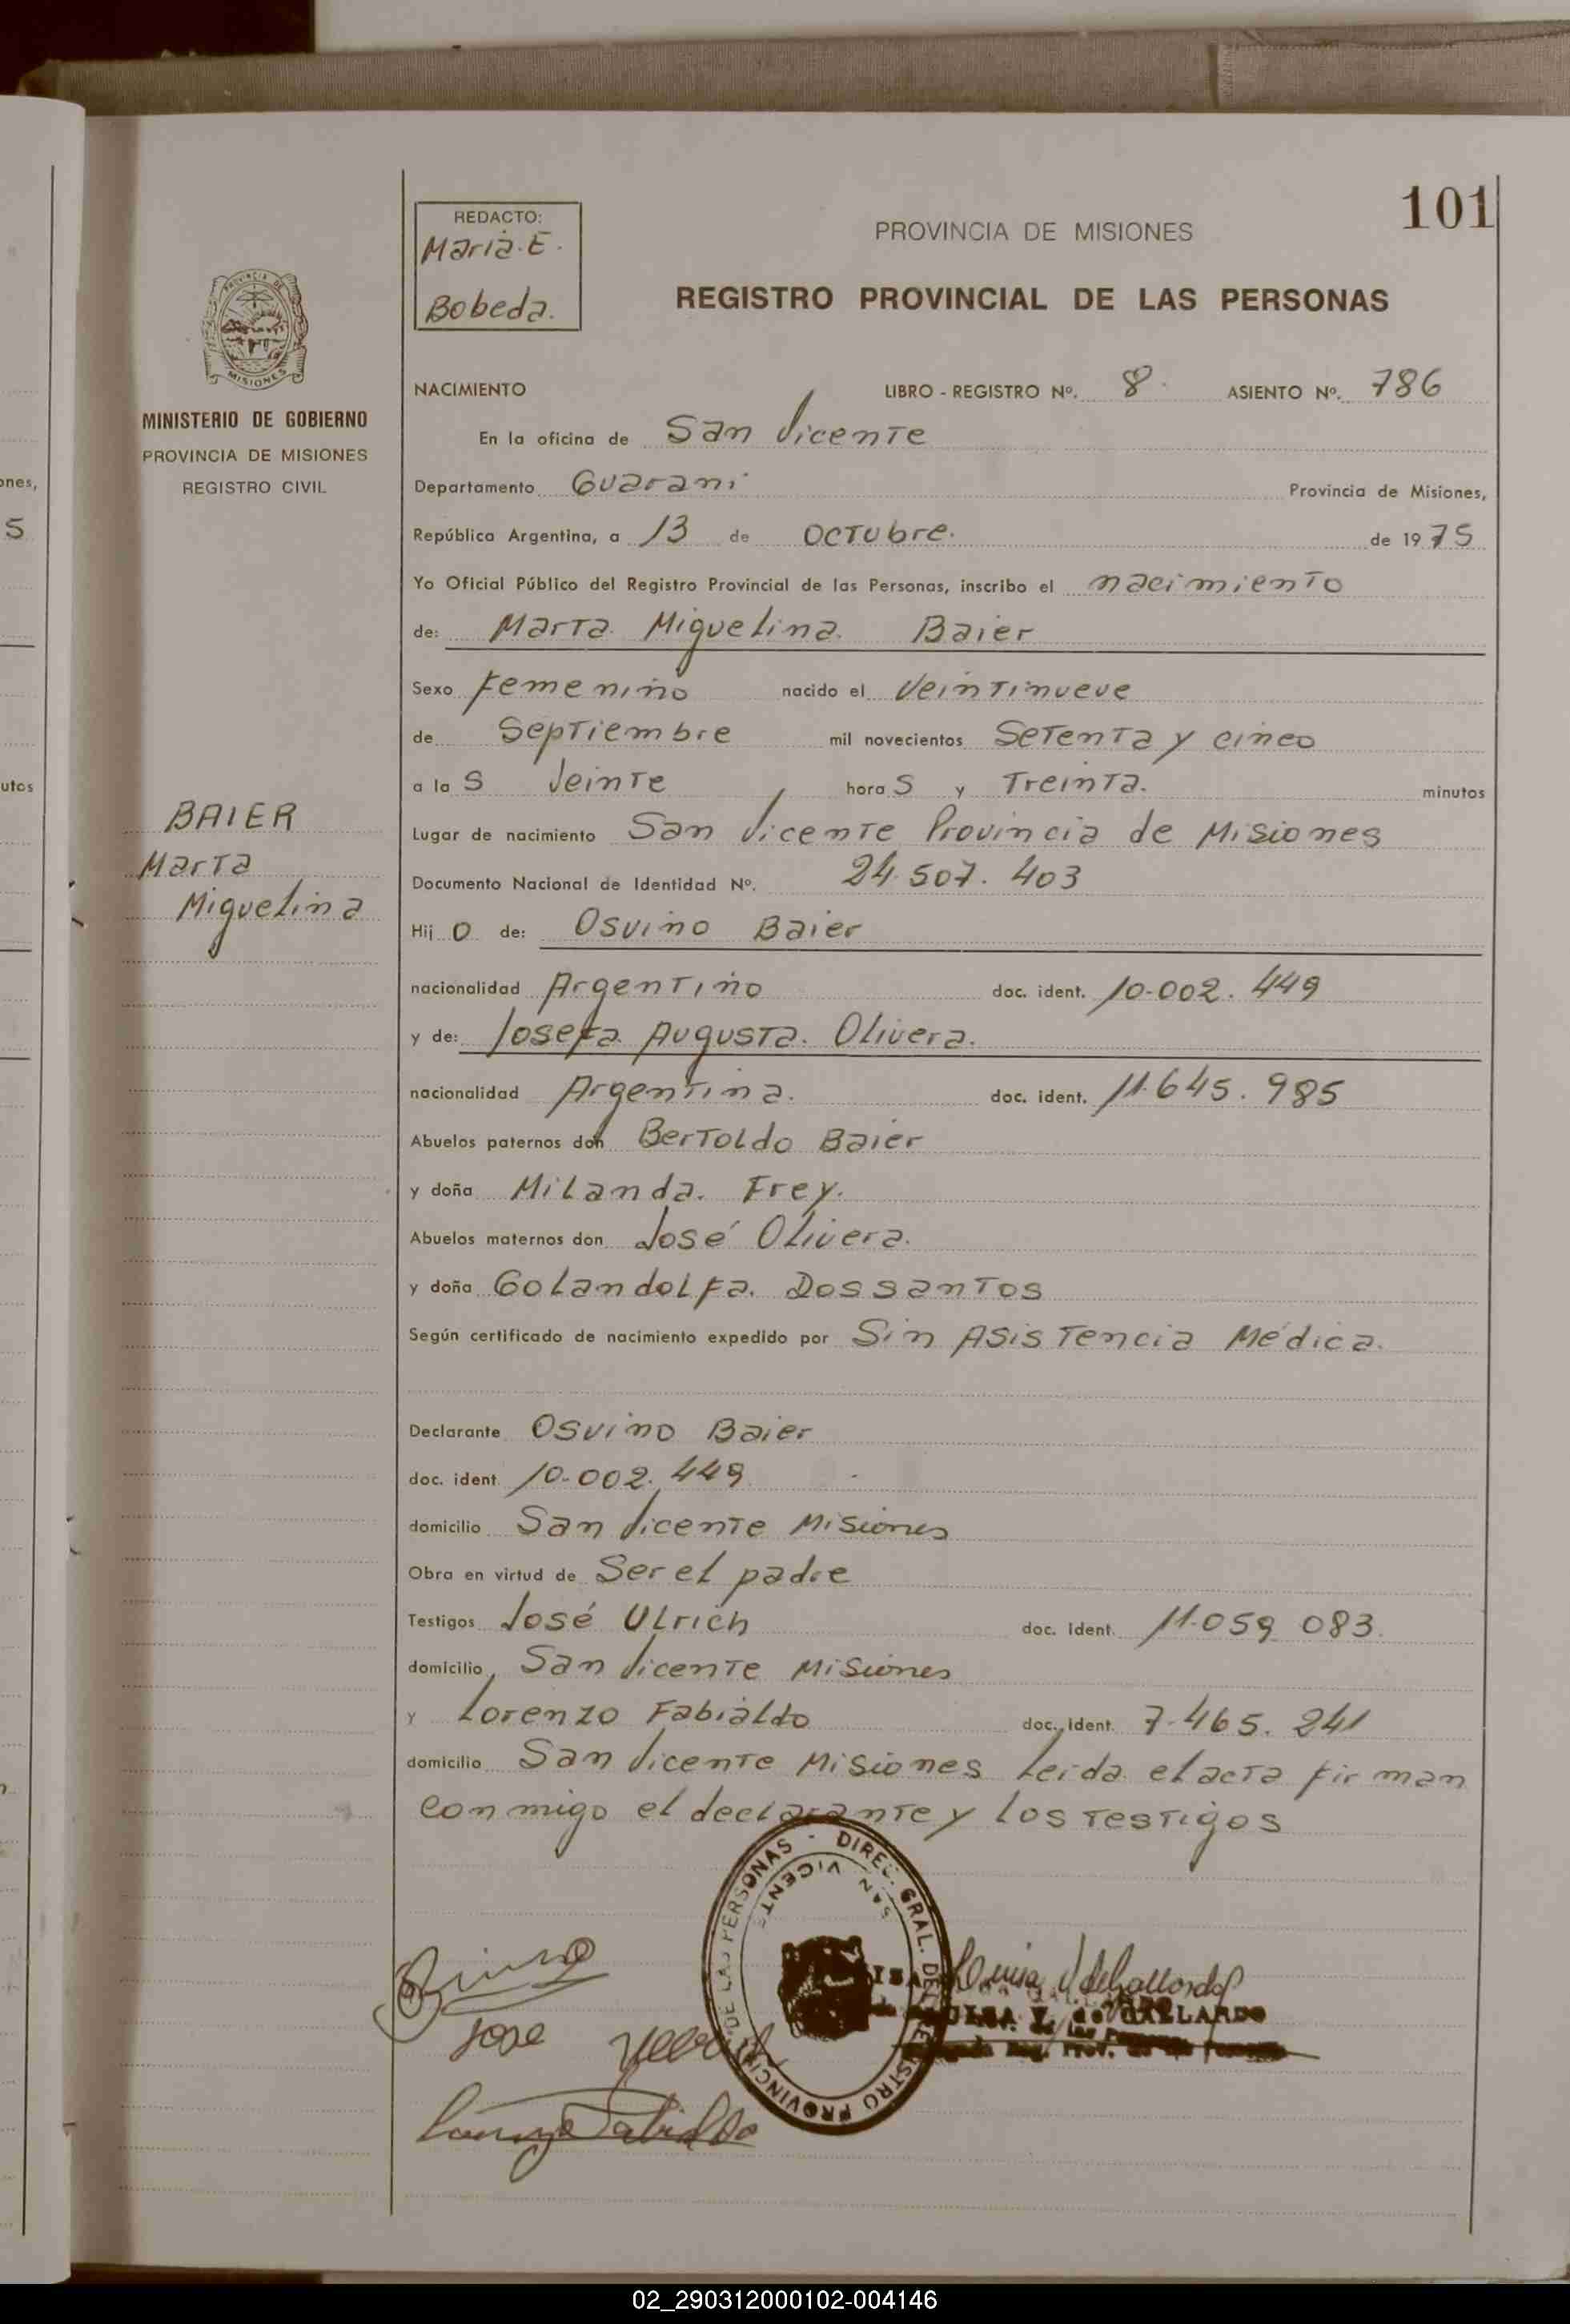 101
REDACTO:
Maria. E.
Bobeda.
PROVINCIA DE MISIONES
REGISTRO PROVINCIAL DE LAS PERSONAS
PROVINCIA DE MISIONES
MINISTERIO DE GOBIERNO
PROVINCIA DE MISIONES
REGISTRO CIVIL
NACIMIENTO LIBRO - REGISTRO Nº. 8. ASIENTO Nº. 786
En la oficina de San Vicente
Departamento Guarani Provincia de Misiones,
República Argentina, a 13 de Octubre. de 1975
Yo Oficial Público del Registro Provincial de las Personas, inscribo el nacimiento
de: Marta Miguelina. Baier
Sexo Femenino nacido el Veintinueve
de Septiembre mil novecientos Setenta y cinco
a las Veinte horas y Treinta. minutos
BAIER
Marta
Miguelina
Lugar de nacimiento San Vicente Provincia de Misiones
Documento Nacional de Identidad Nº. 24.507.403
Hijo de: Osvino Baier
nacionalidad Argentino doc. ident. 10.002.449
y de: Josefa Augusta. Olivera.
nacionalidad Argentina. doc. ident. 11.645.985
Abuelos paternos don Bertoldo Baier
y doña Milanda. Frey.
Abuelos maternos don José Olivera.
y doña Golandolfa. Dossantos
Según certificado de nacimiento expedido por Sin Asistencia Médica.
Declarante Osvino Baier
doc. ident. 10.002.449
domicilio San Vicente Misiones
Obra en virtud de Ser el padre
Testigos José Ulrich doc. ident. 11.059.083.
domicilio San Vicente Misiones
y Lorenzo Fabialdo doc. ident. 7.465.241
domicilio San Vicente Misiones Leida el acta firman
conmigo el declarante y los testigos
DIREC. GRAL. DEL REGISTRO PROVINCIAL DE LAS PERSONAS -
SAN VICENTE
Jose
GALLARDO
ones,
5
utos
02_290312000102-004146